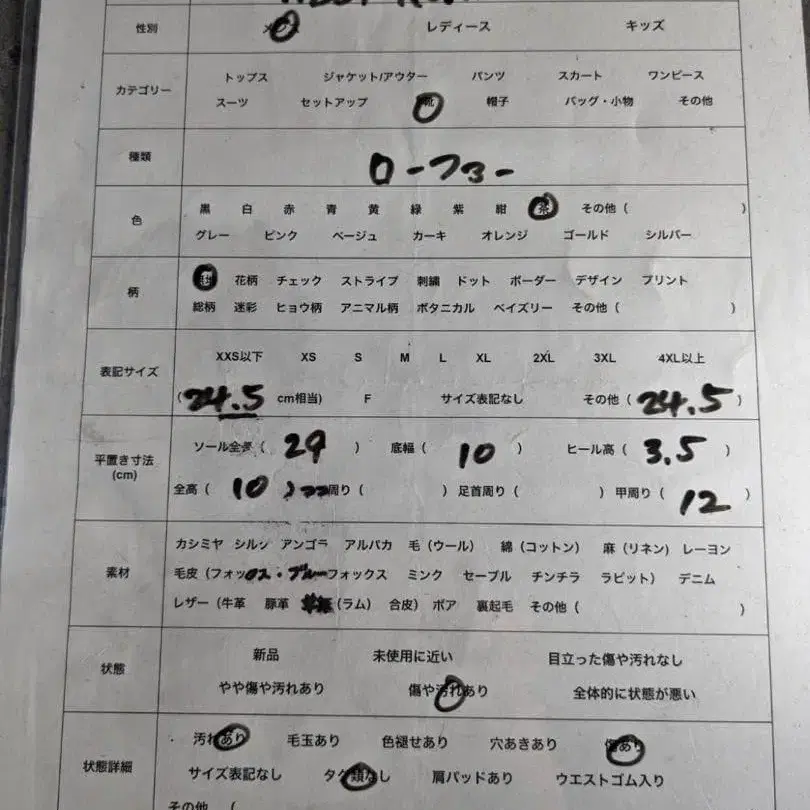 性別 メンズ レディース キッズ
カテゴリー トップス ジャケット/アウター パンツ スカート ワンピース
スーツ セットアップ 靴 帽子 バッグ・小物 その他
種類 ローファー
色 黒 白 赤 青 黄 緑 紫 紺 茶 その他 ( )
グレー ピンク ベージュ カーキ オレンジ ゴールド シルバー
柄 花柄 チェック ストライプ 刺繍 ドット ボーダー デザイン プリント
総柄 迷彩 ヒョウ柄 アニマル柄 ボタニカル ペイズリー その他 ( )
表記サイズ XXS以下 XS S M L XL 2XL 3XL 4XL以上
(24.5 cm相当) F サイズ表記なし その他 ( 24.5 )
平置き寸法 (cm) ソール全長 ( 29 ) 底幅 ( 10 ) ヒール高 ( 3.5 )
全高 ( 10 ) 周り ( ) 足首周り ( ) 甲周り ( 12 )
素材 カシミヤ シルク アンゴラ アルパカ 毛 (ウール) 綿 (コットン) 麻 (リネン) レーヨン
毛皮 (フォックス・ブルーフォックス ミンク セーブル チンチラ ラビット) デニム
レザー (牛革 豚革 (ラム) 合皮) ボア 裏起毛 その他 ( )
状態 新品 未使用に近い 目立った傷や汚れなし
やや傷や汚れあり 傷や汚れあり 全体的に状態が悪い
状態詳細 汚れあり 毛玉あり 色褪せあり 穴あきあり 傷あり
サイズ表記なし タグ類なし 肩パッドあり ウエストゴム入り
その他 (